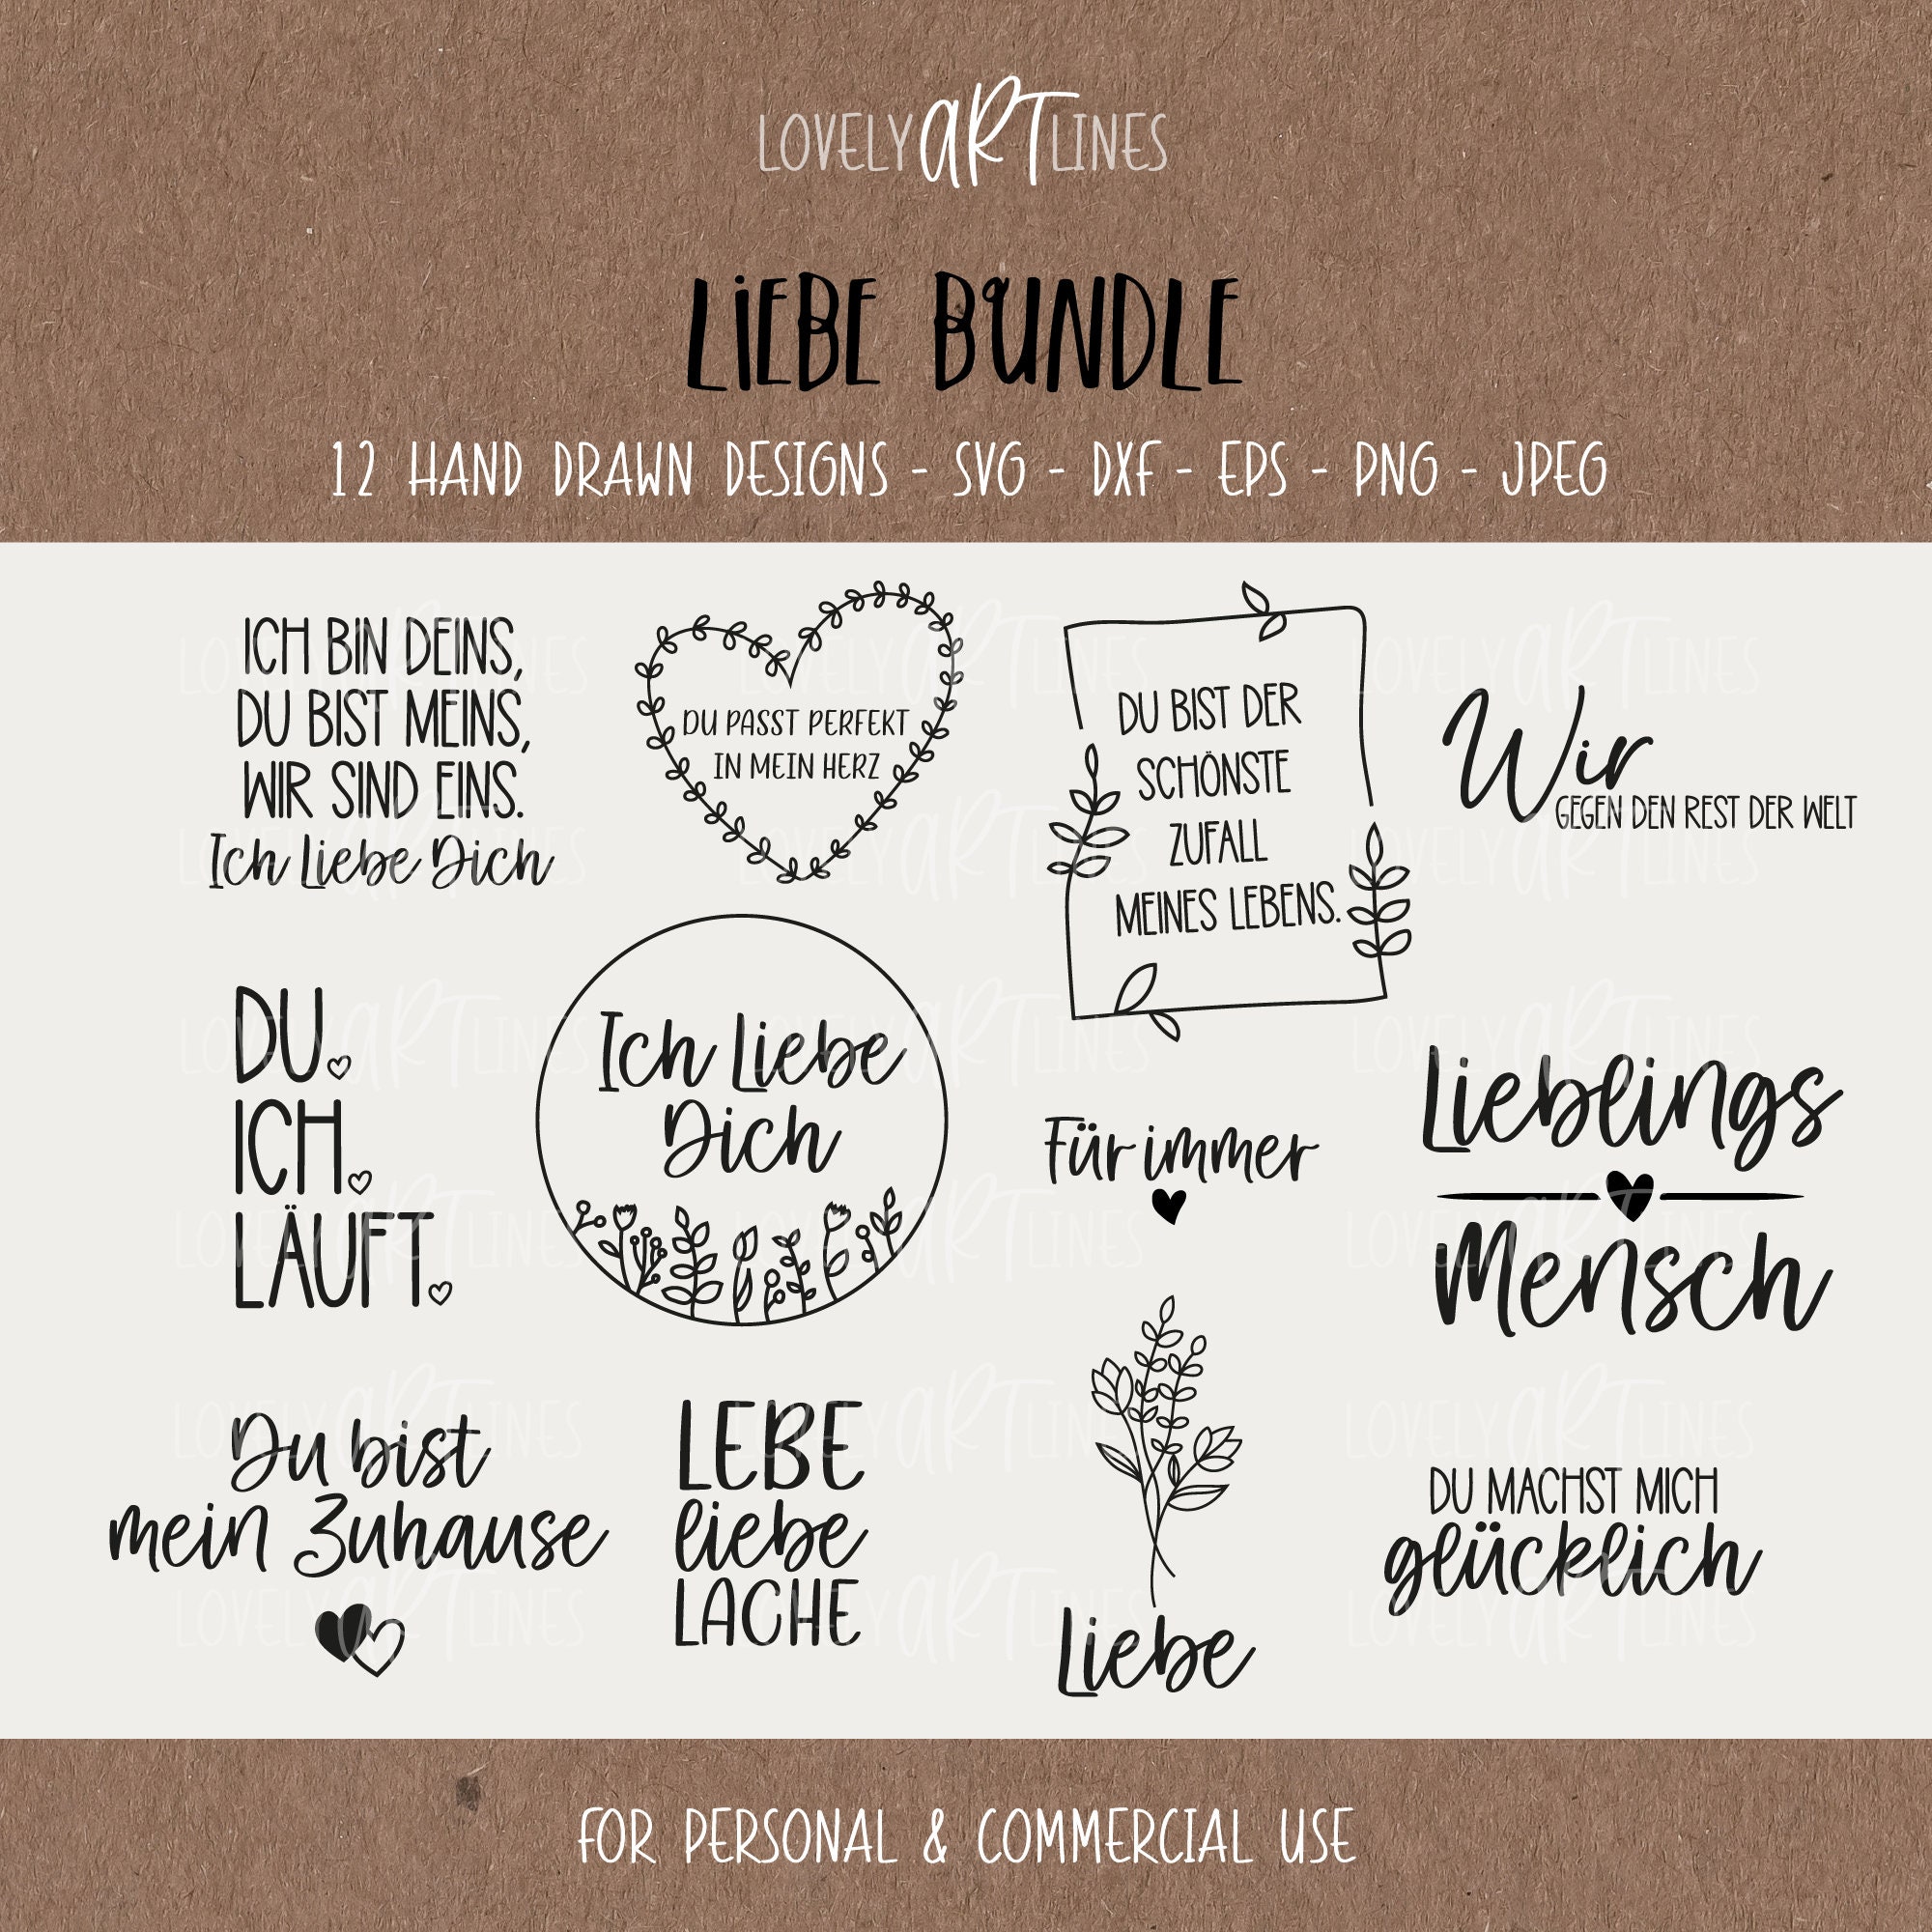 LOVELY ART LINES
LIEBE BUNDLE
12 HAND DRAWN DESIGNS - SVG - DXF - EPS - PNG - JPEG
ICH BIN DEINS,
DU BIST MEINS,
WIR SIND EINS.
Ich Liebe Dich
DU PASST PERFEKT
IN MEIN HERZ
DU BIST DER
SCHÖNSTE
ZUFALL
MEINES LEBENS.
Wir
GEGEN DEN REST DER WELT
DU.
ICH.
LÄUFT.
Ich Liebe
Dich
Für immer
Lieblings
Mensch
Du bist
mein Zuhause
LEBE
liebe
LACHE
Liebe
DU MACHST MICH
glücklich
FOR PERSONAL & COMMERCIAL USE